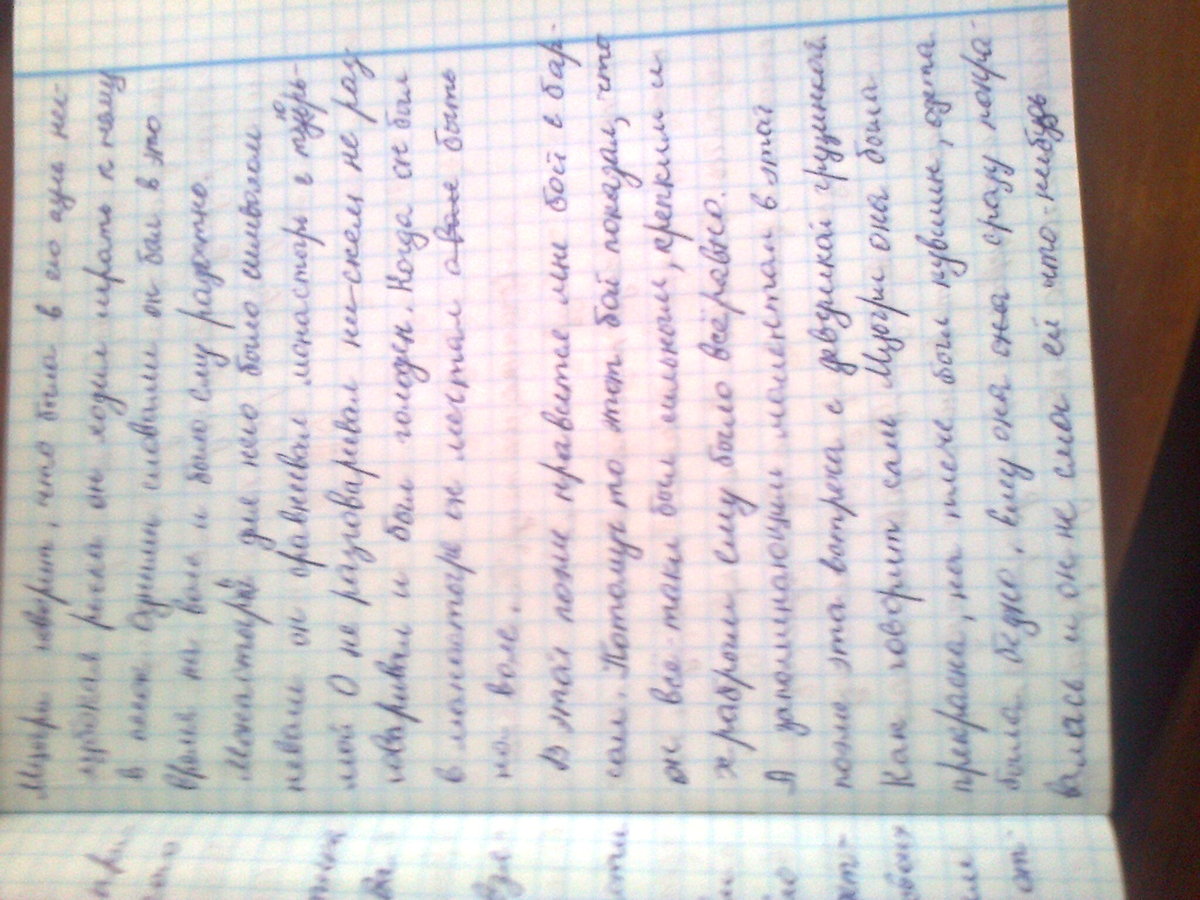 Мцыри говорит, что была в его ауле не-
глубокая речка он ходил играть к нему
в полок. Одними словами он был в это
время на воле и было ему радостно.
Монастырь для него было символом
неволи он сравнивал монастырь с тюрь-
мой О не разговаривал ни-скем не раз
говаривал и был голоден. Когда он был
в монастыре он мечтал о воле быть
на воле.
В этой поэме нравится мне бой с бар-
сом. Потому то этот бой показал, что
он всё-таки был сильном, крепким и
храбрым ему было всёравно.
А запоминающим моментам в этой
поэме эта встреча с девушкой грузинкой.
Как говорит сам Мцыри она была
прекрасна, на плече был кувшин, одета
была бедно. ему она она сразу понра-
валась и он не смог ей что-нибудь
при
тной
взя
ли
от-